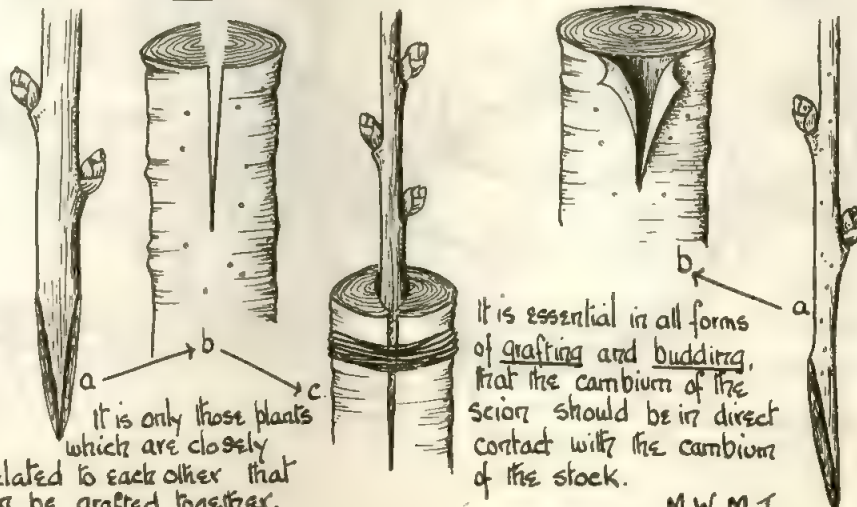 a
b
c.
It is only those plants
which are closely
elated to each other that
be grafted together.
b
a
It is essential in all forms
of grafting and budding,
that the cambium of the
scion should be in direct
contact with the cambium
of the stock.
M.W.M.J.